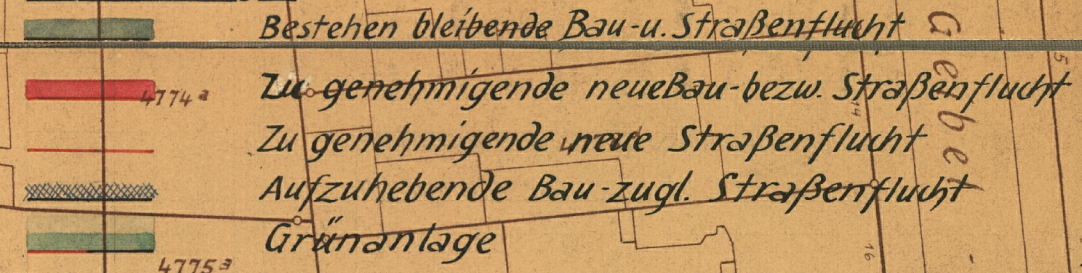 Bestehen bleibende Bau-u. Straßenflucht
Zu genehmigende neue Bau-bezw. Straßenflucht
4774a
Zu genehmigende neue Straßenflucht
Aufzuhebende Bau-zugl. Straßenflucht
Grünanlage
4775a
Gebel
5
14
16